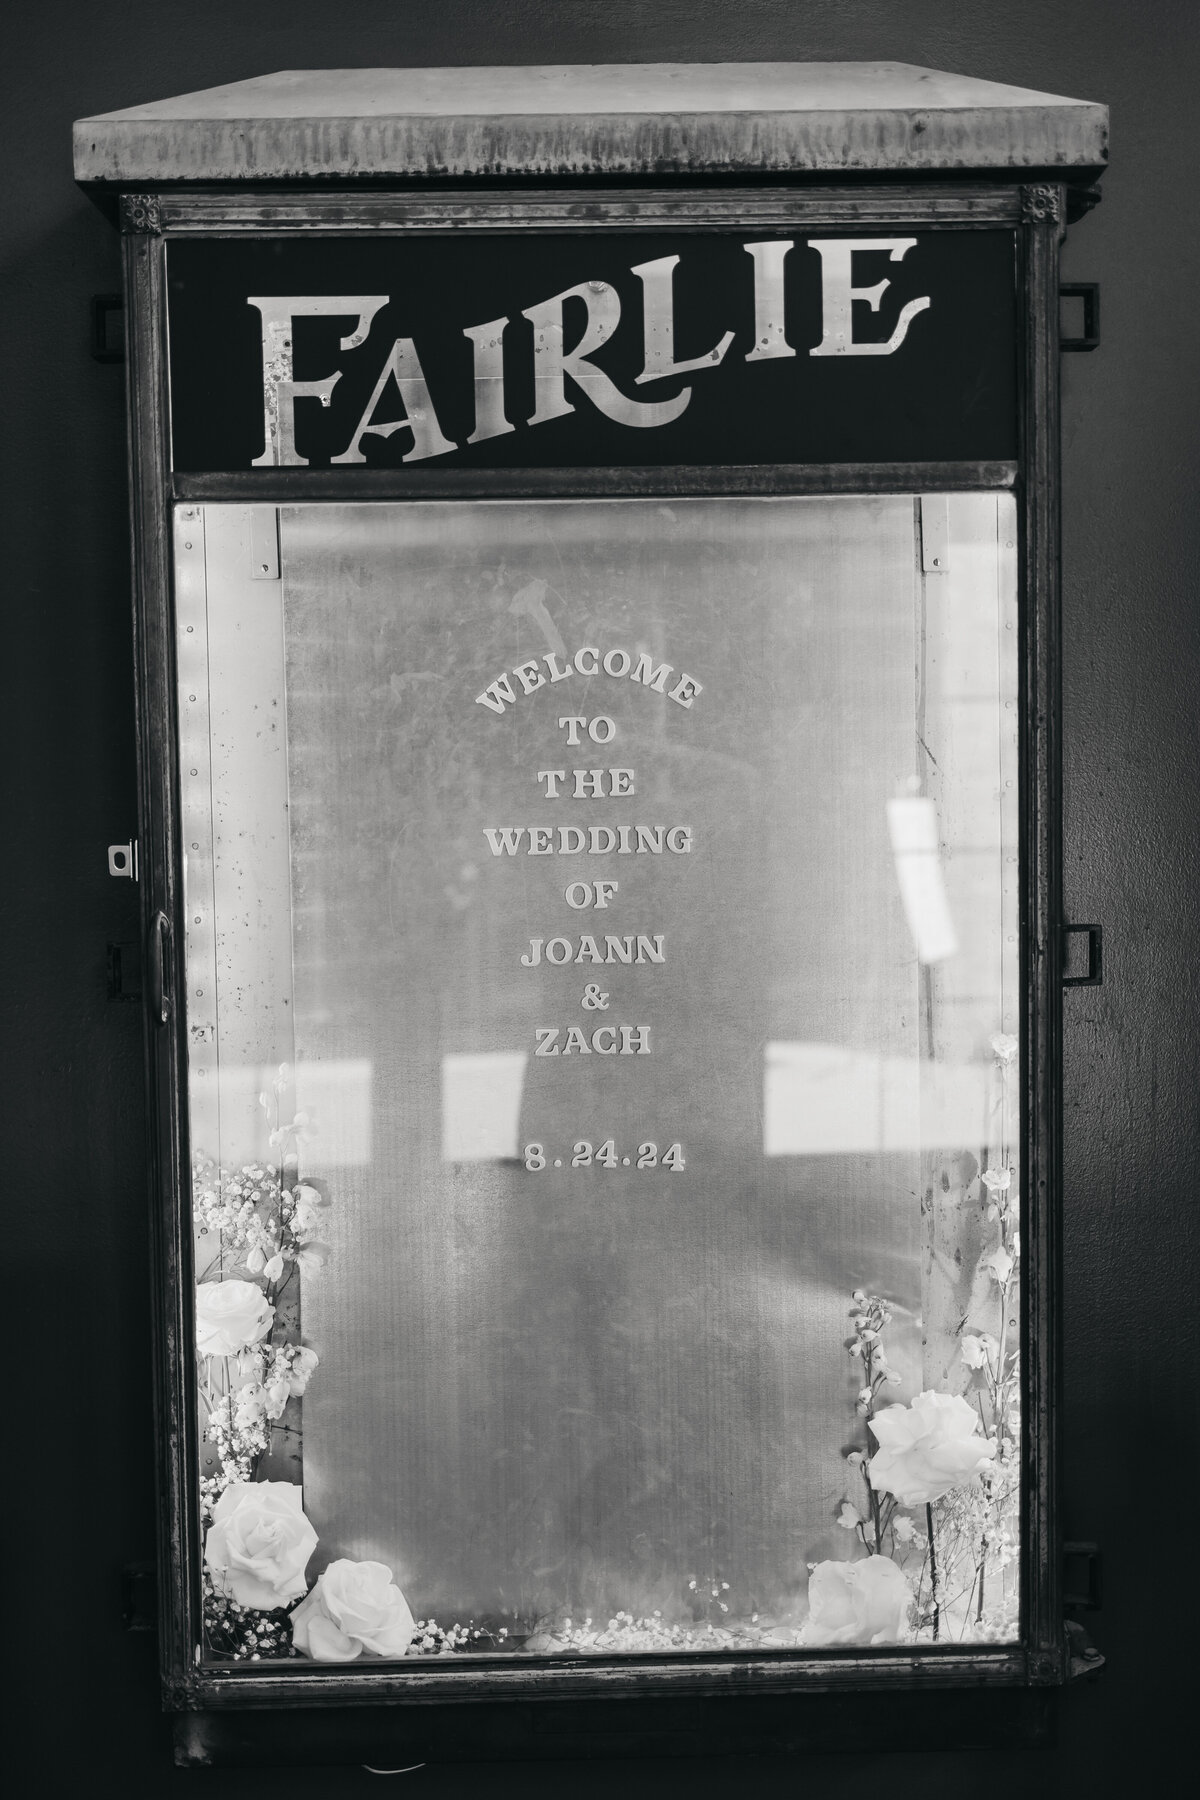 FAIRLIE
WELCOME
TO
THE
WEDDING
OF
JOANN
&
ZACH
8.24.24